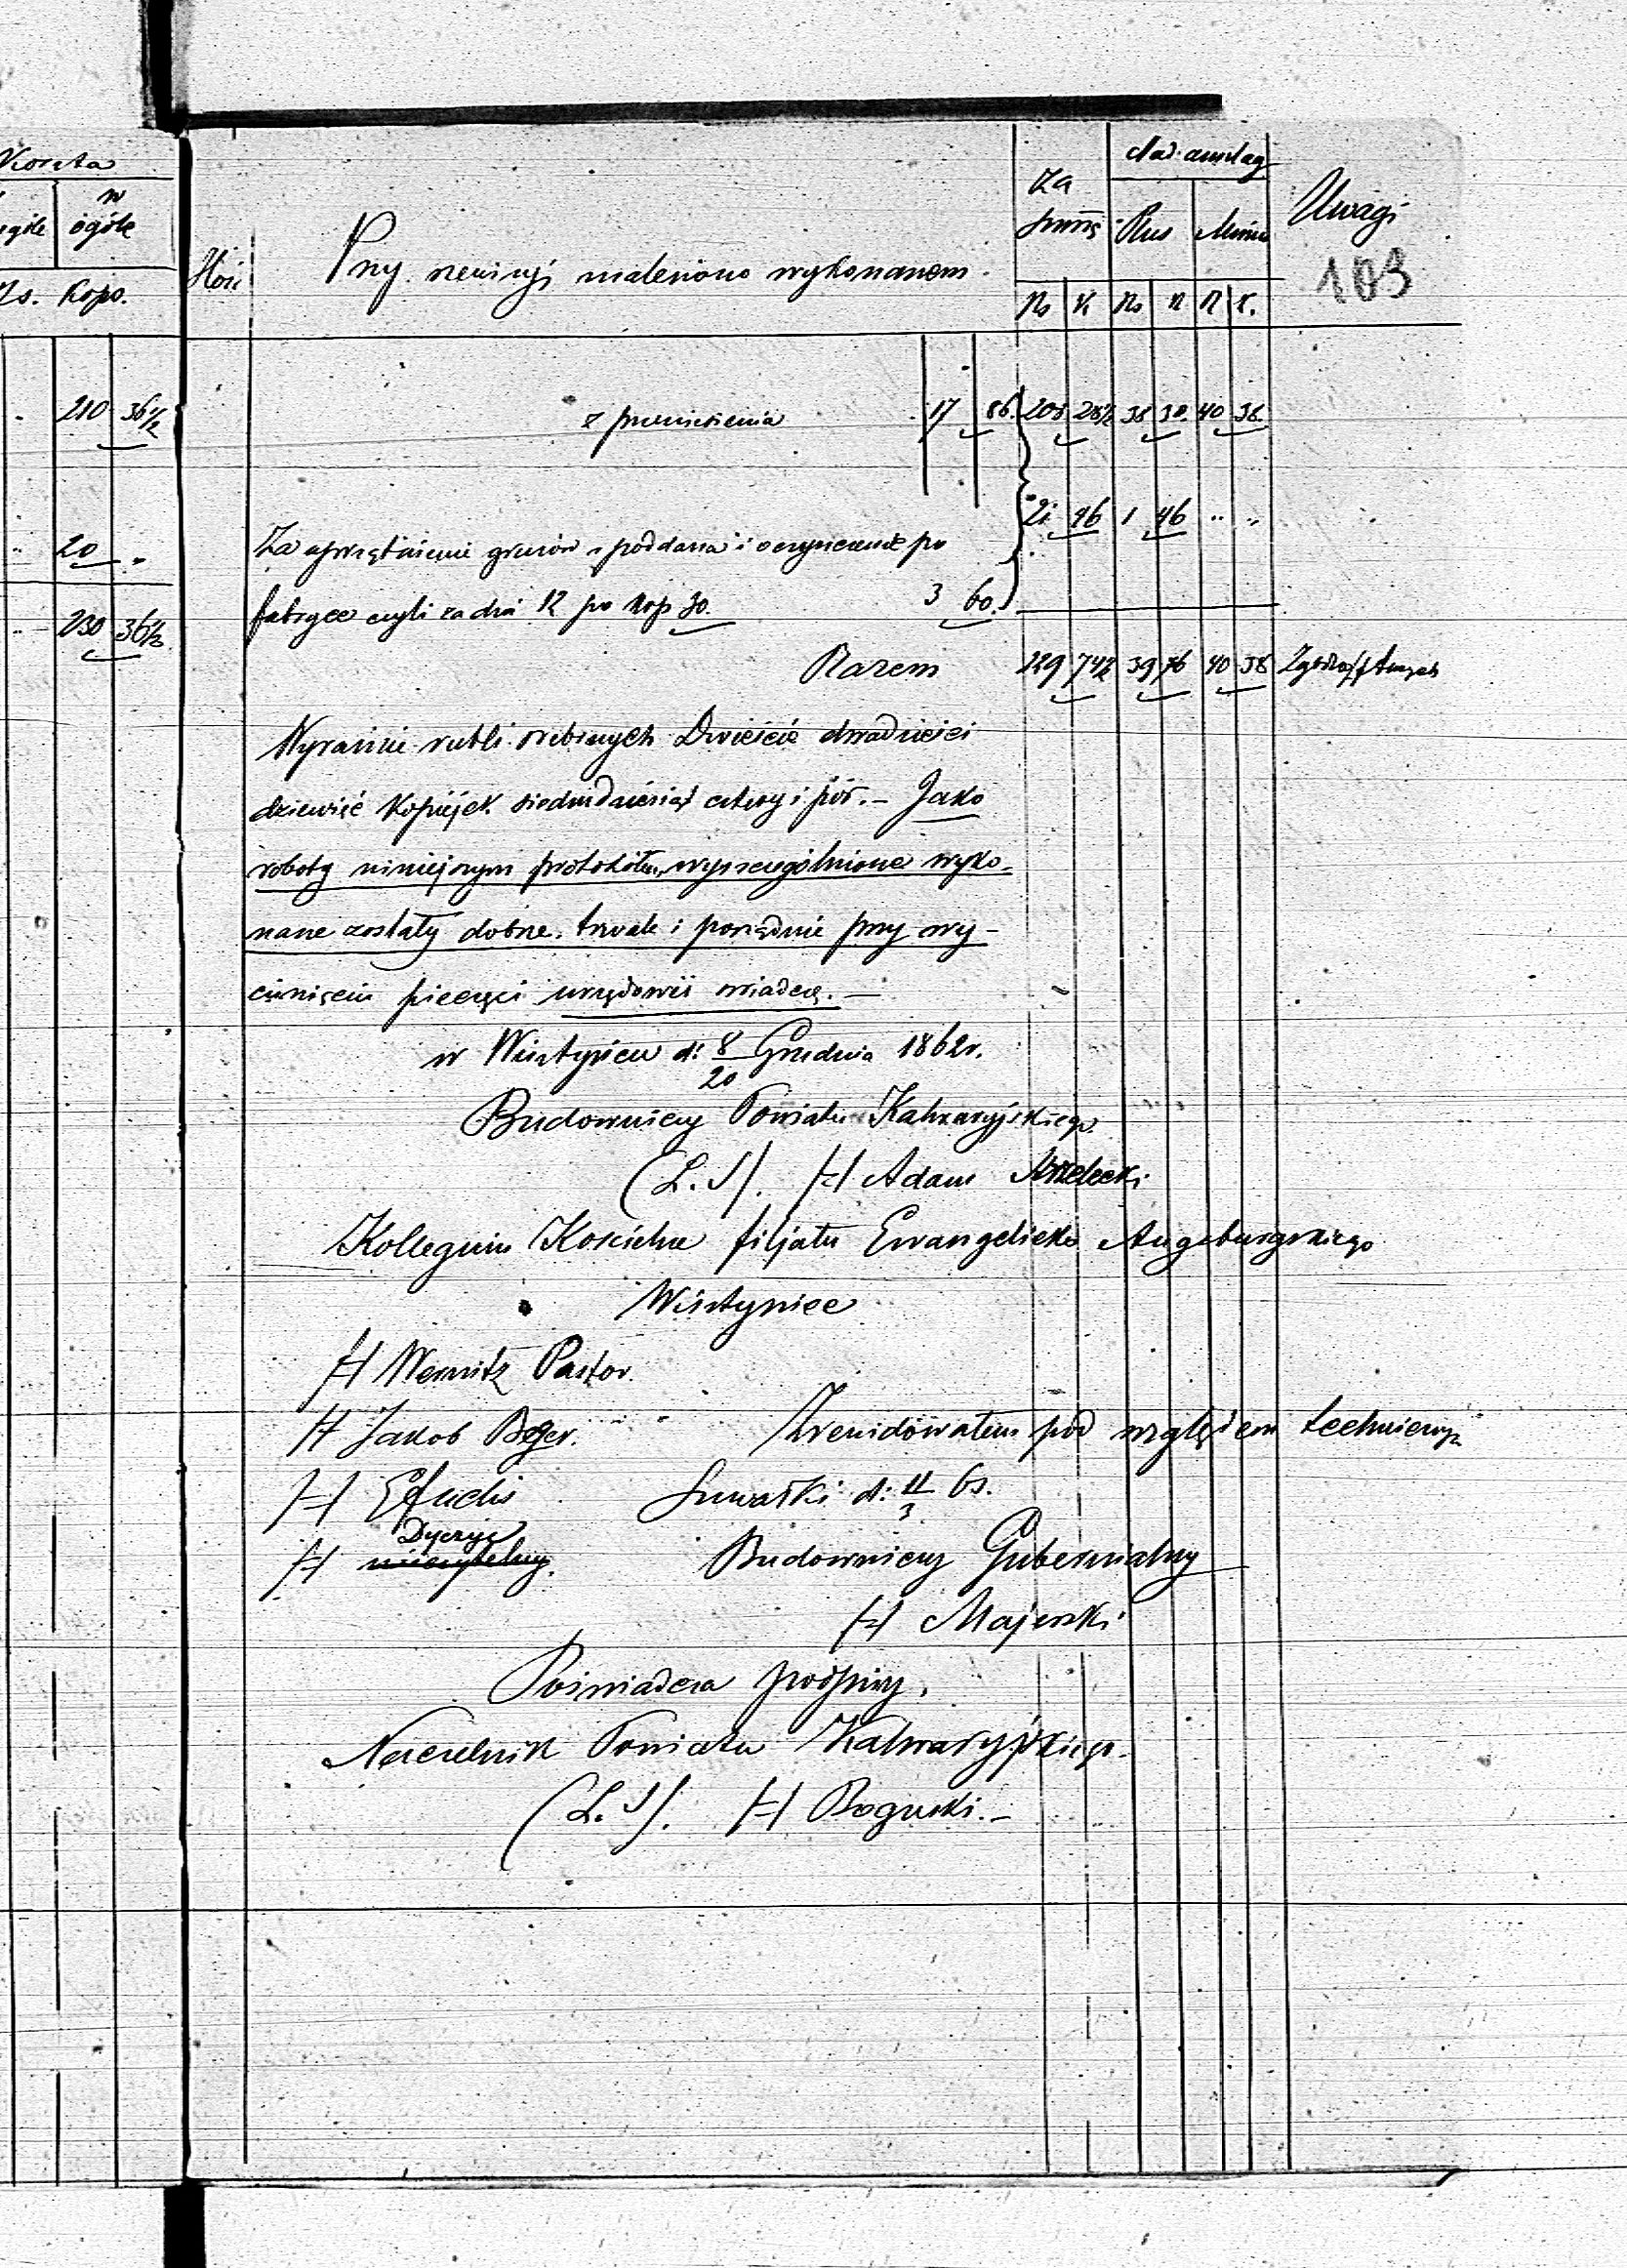 Koszta
w
ogóle
ogóle
Rs. Kopo.
210 36 1/2
20 "
230 36 1/2
Ilość
Przy rewizyi znaleziono wykonanem.
Za
summę
Nad anszlag
Plus
Minus
Uwagi
103
Rs K Rs K R K.
z przeniesienia 17 86. 208 28 1/2 38 30. 40 38.
21 46 1 46 " "
Za uprzątnienie gruzów z poddasza i oczyszczenie po
fabryce czyli za dni 12 po kop 30. 3 60.
Razem 229 74 1/2 39 76 40 38
Wyraźnie rubli srebrnych Dwieście dwadzieścia
dziewięć kopiejek siedmdziesiąt cztery i pół. – Jako
roboty niniejszym protokółem wyszczególnione wyko-
nane zostały dobrze, trwale i porządnie przy wy-
ciśnięciu pieczęci urzędowej świadczę. –
w Wisztyńcu d: 8/20 Grudnia 1862 r.
Budowniczy Powiatu Kalwaryjskiego
(L.S). /-/ Adam
Kollegium Kościelne filjału Ewangelicko Augsburgskiego
Wisztyniec
/-/ Wernitz Pastor.
/-/ Jakob Beger.
Zrewidowałem pod względem technicznym
/-/
Suwałki d: 11/3 63.
Dyczyc
/-/
Budowniczy Gubernialny
/-/ Majerski
Poświadcza podpisy.
Naczelnik Powiatu Kalwaryjskiego.
(L.S). /-/ Roguski. –